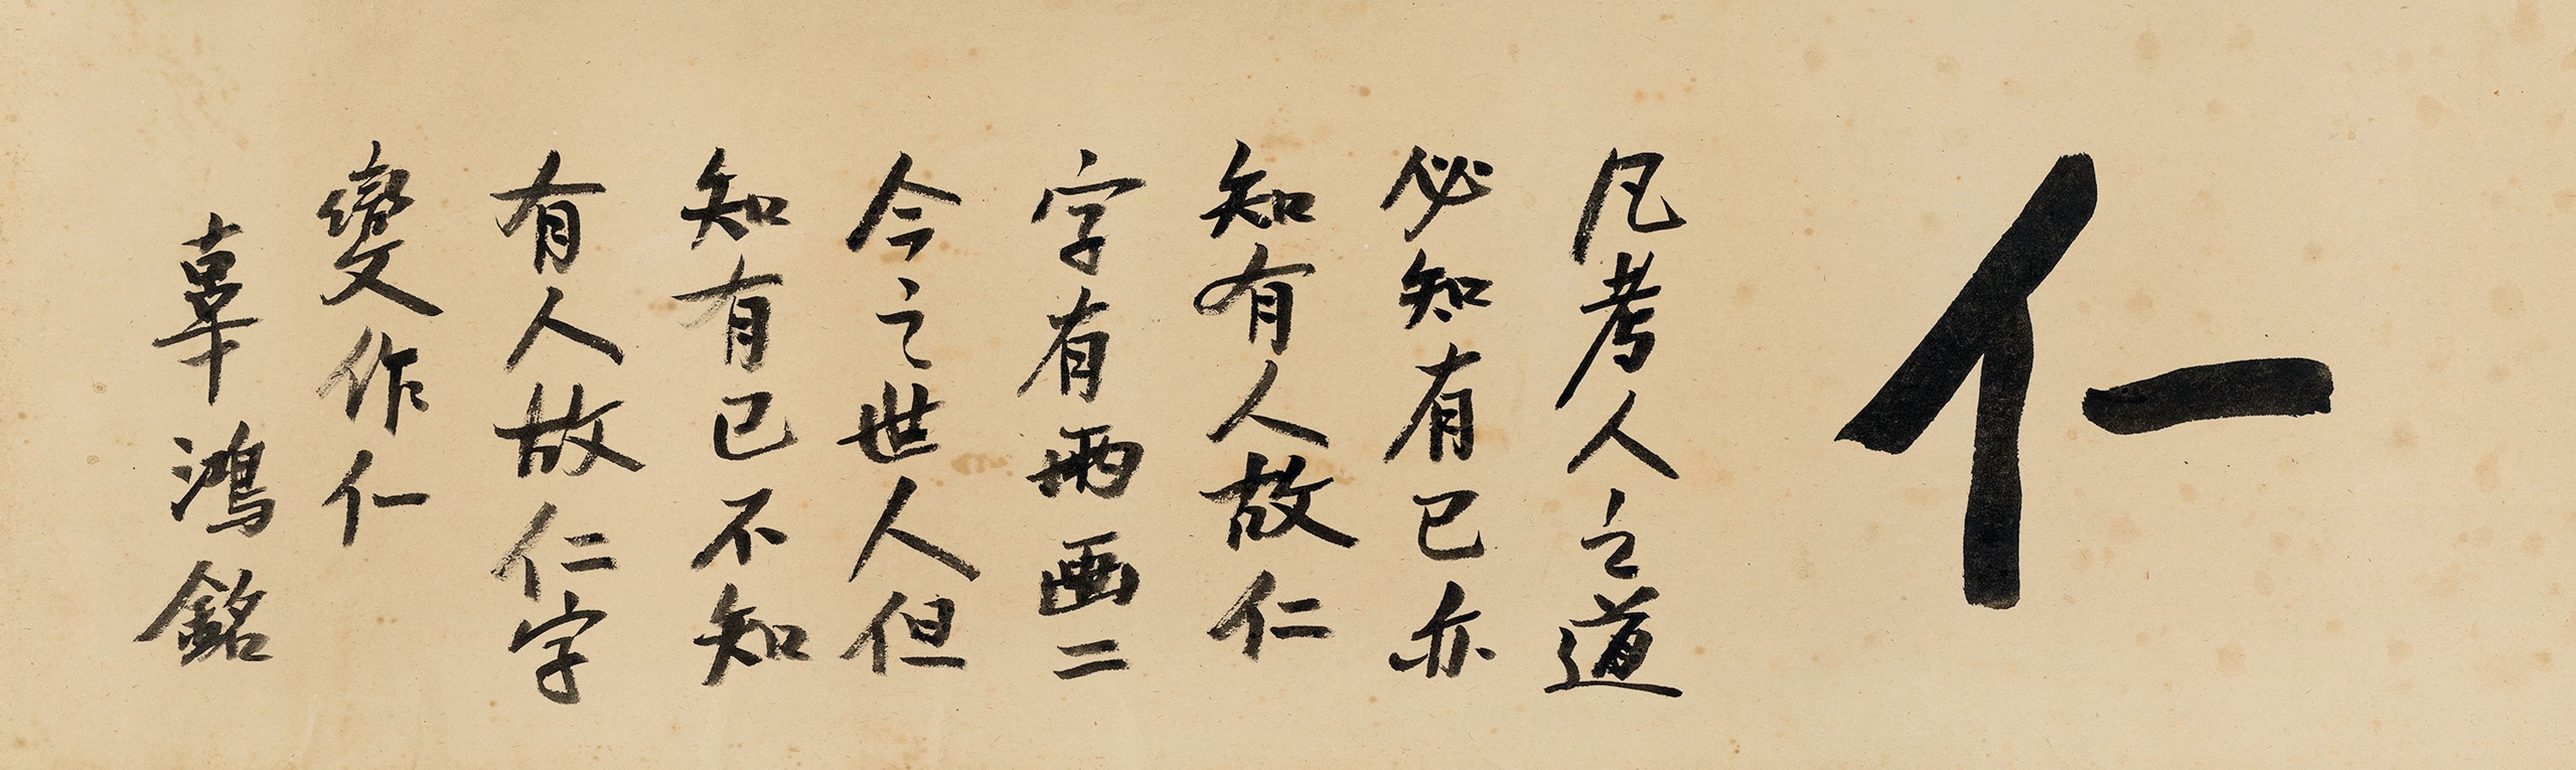 ⿰亻一
凡考人之道
必知有己亦
知有人故仁
字有兩画二
今之世人但
知有己不知
有人故仁字
變作⿰亻一
辜鴻銘